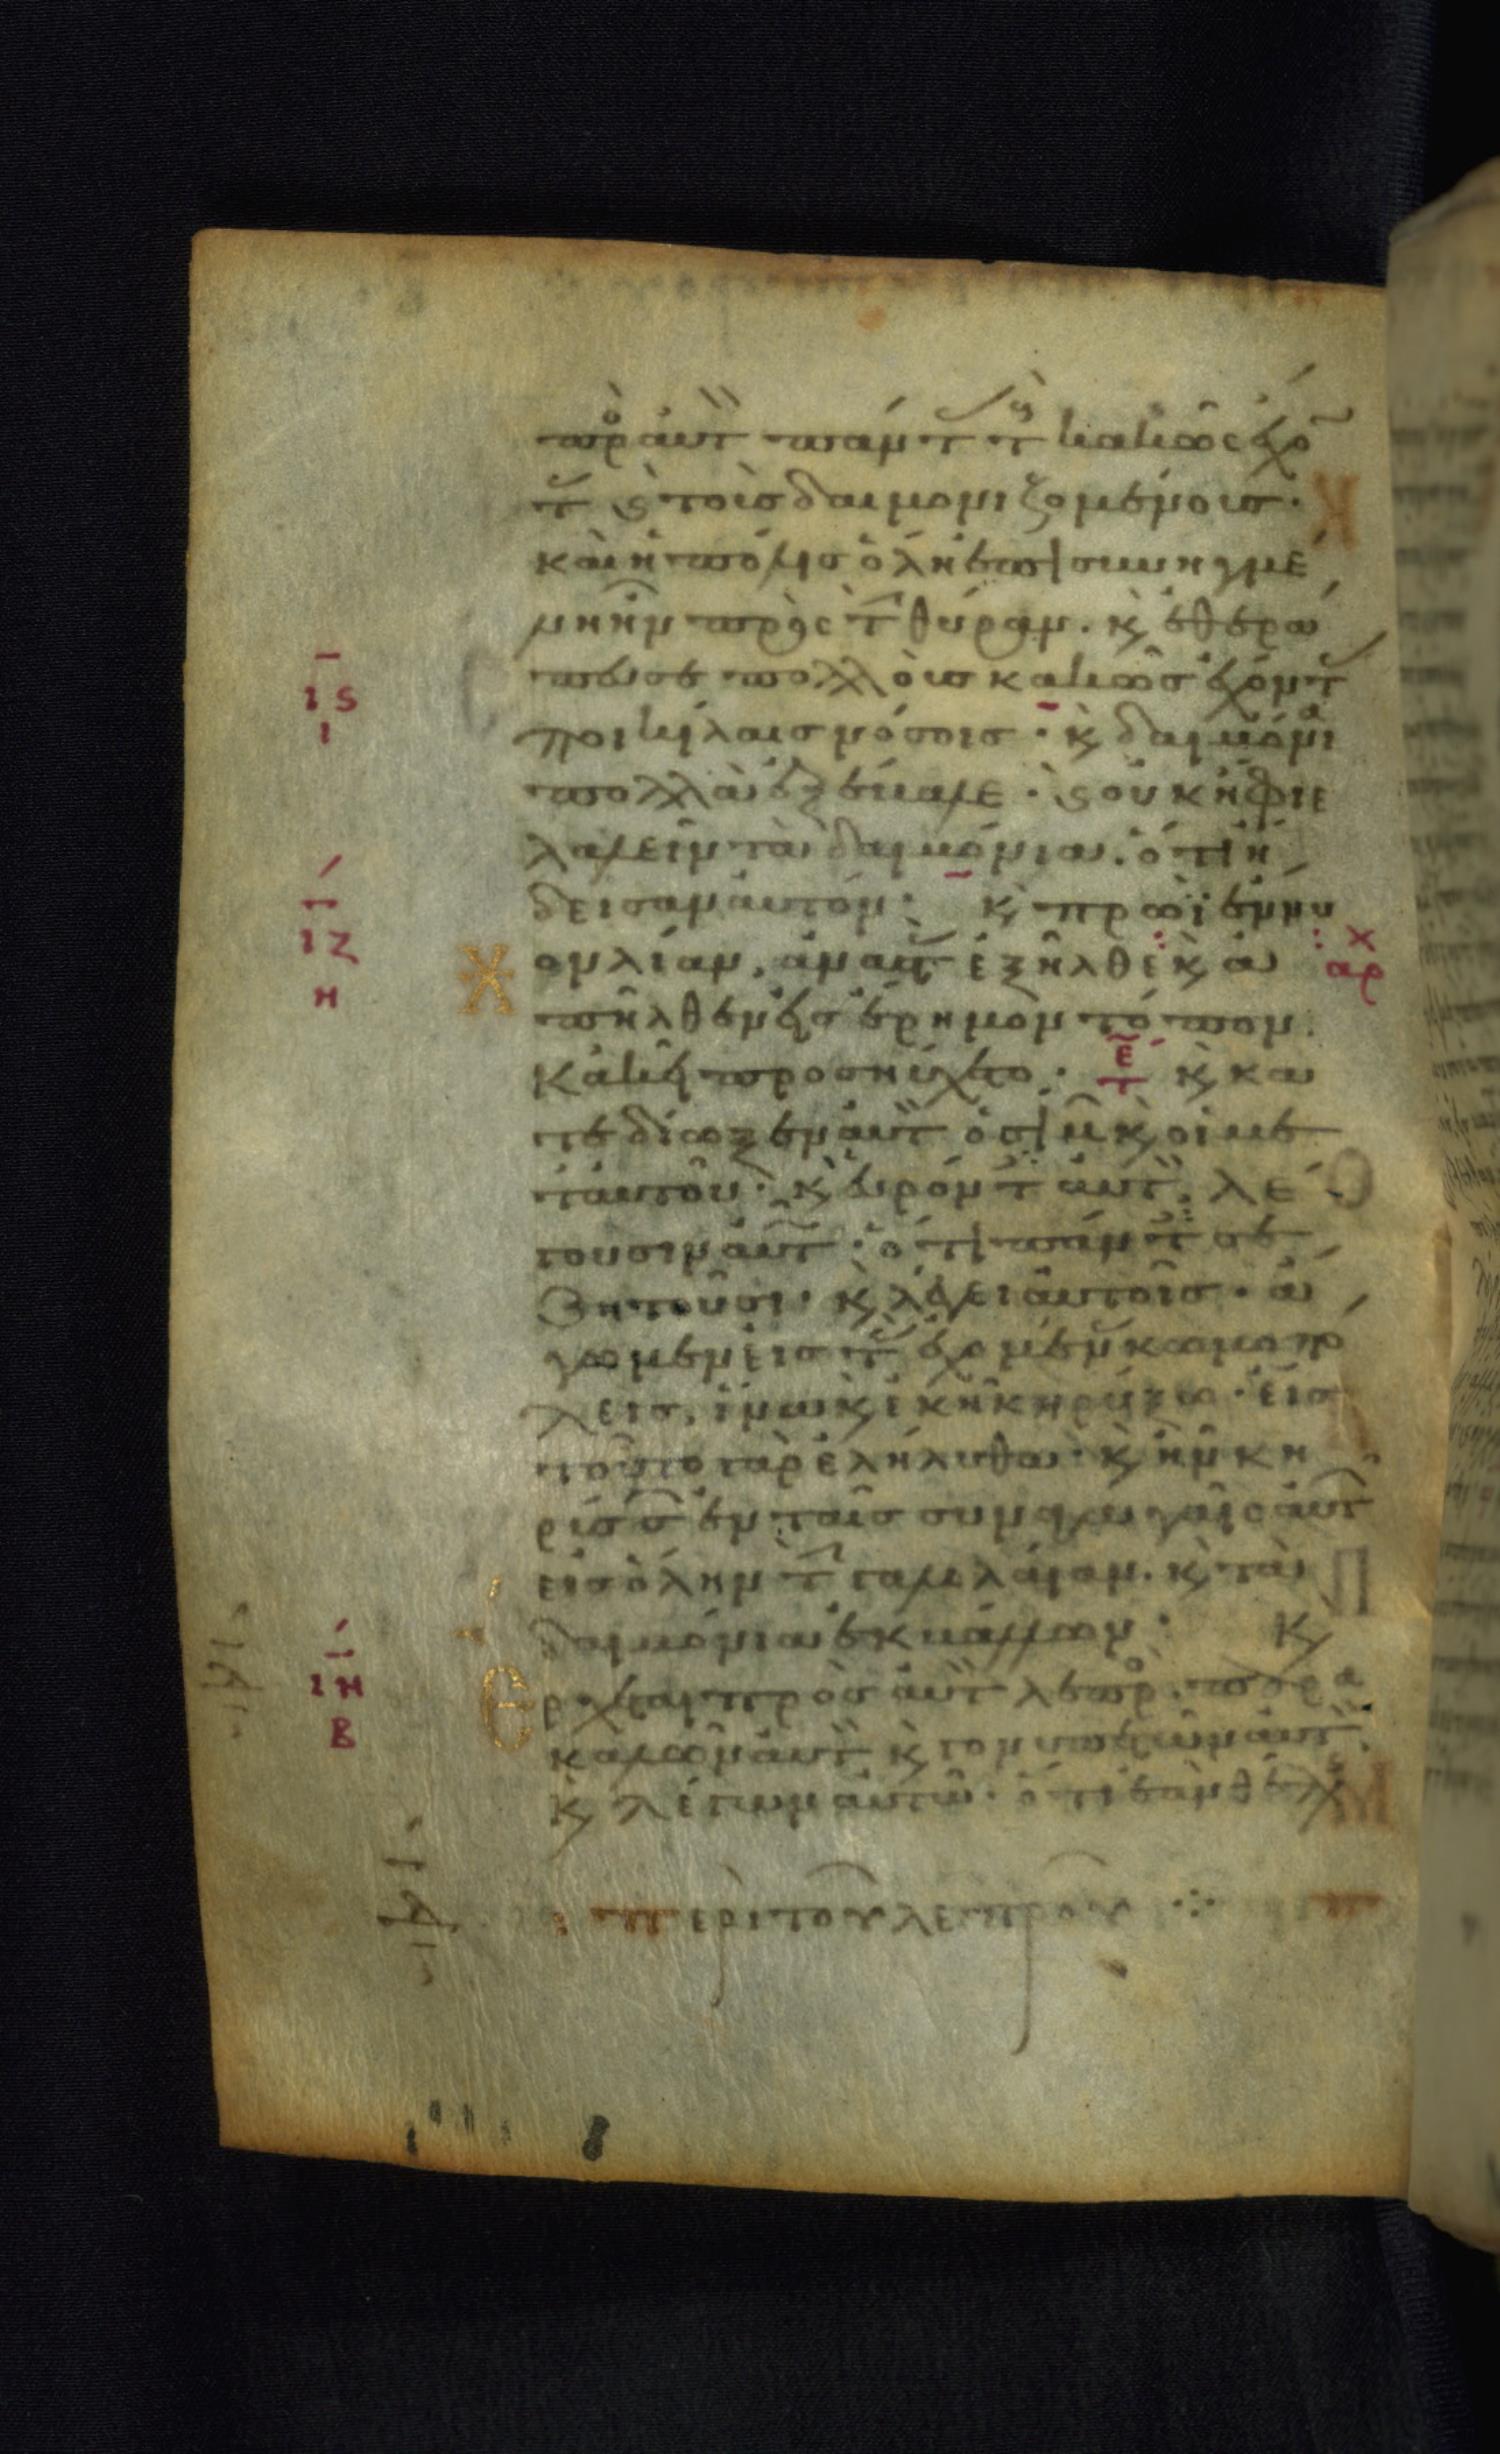 πρὸς αὐτ πάντ τοὺς κακῶς ἔχον
τ κ τοὺς δαιμονιζομένους·
καὶ ἡ πόλις ὅλη ἐπισυνηγμέ
νη ἦν πρὸς τ θύραν. κ ἐθερά
πευσε πολλοὺς κακῶς ἔχοντ
ποικίλαις νόσοις· κ δαιμόνια
πολλὰ ἐξέβαλε· κ οὐκ ἤφιε
λαλεῖν τὰ δαιμόνια. ὅτι ᾔ
δεισαν αὐτόν· κ πρωῒ ἔννυ
χον λίαν, ἀναστ ἐξῆλθε κ ἀ
πῆλθεν εἰς ἔρημον τόπον.
κἀκεῖ προσηύχετο· κ κα
τεδίωξεν αὐτ ὁ σιμ κ οἱ με
τ αὐτοῦ· κ εὑρόντ αὐτ. λέ
γουσιν αὐτ· ὅτι πάντ σε
ζητοῦσι· κ λέγει αὐτοῖς· ἄ
γωμεν εἰς τ ἐχομέν κωμοπό
λεις, ἵνα κἀκεῖ κηρύξω· εἰς
τοῦτο γὰρ ἐλήλυθα· κ ἦν κη
ρύσσ ἐν ταῖς συναγωγαῖς αὐτ
εἰς ὅλην τ γαλιλαίαν. κ τὰ
δαιμόνια ἐκβάλλων· κ
ἔρχεται πρὸς αὐτ λεπρ. παρα
καλῶν αὐτ κ γονυπετῶν αὐτ.
κ λέγων αὐτῶ· ὅτι ἐὰν θέλῃς
ις
ι
ιζ
η
χ
αρ
ιη
β
περὶ τοῦ λεπροῦ